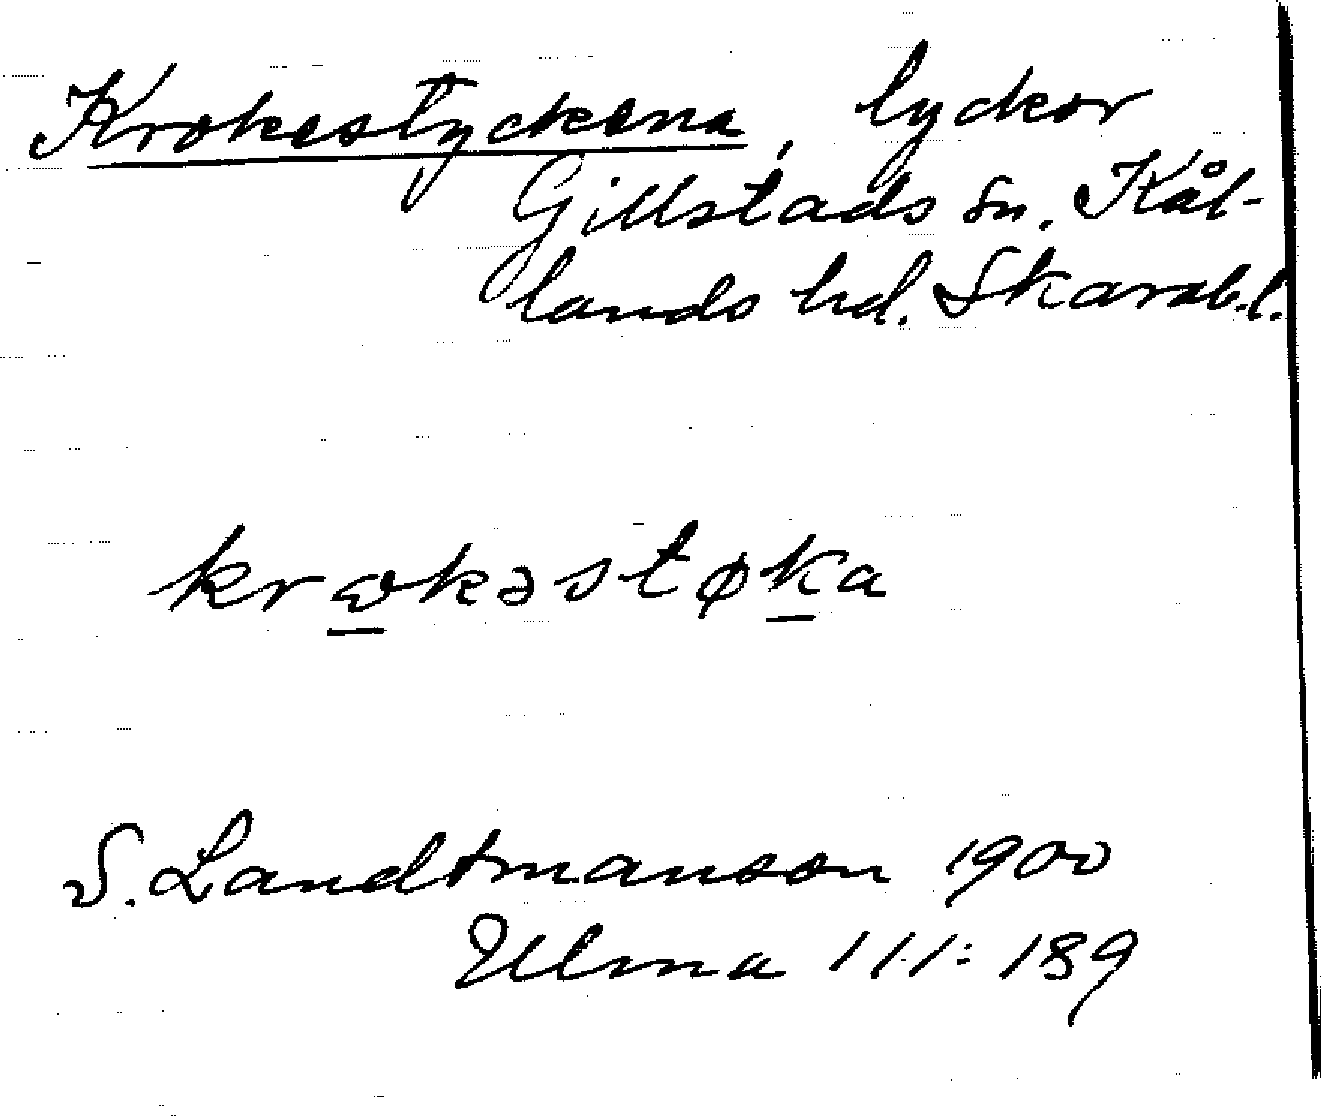 Krokestyckena, lyckor
Gillstads sn. Kål-
lands hd. Skarab.l.
krωkəstøka
S. Landtmanson 1900
Ulma 111:189